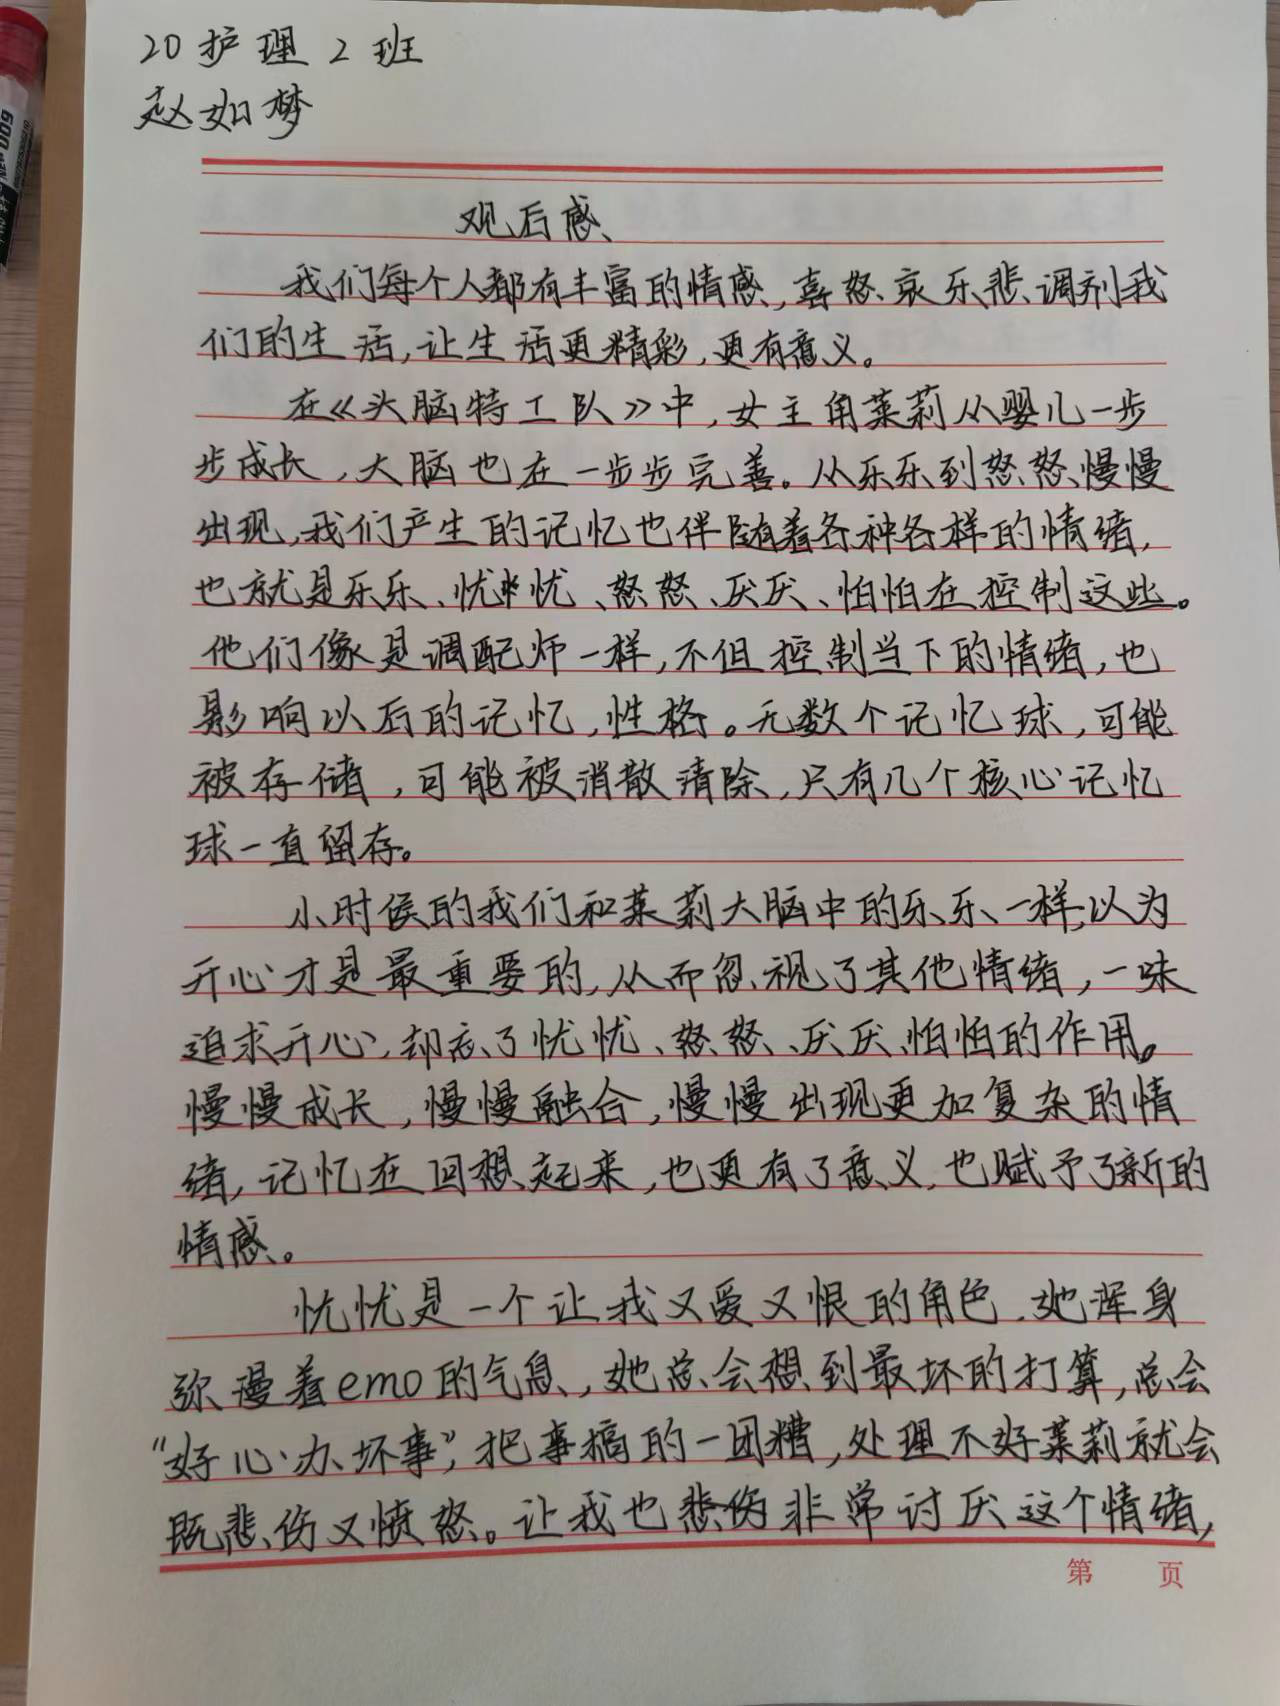 20护理2班
赵如梦
观后感
我们每个人都有丰富的情感,喜怒哀乐悲调剂我
们的生活,让生活更精彩,更有意义。
在《头脑特工队》中,女主角莱莉从婴儿一步
步成长,大脑也在一步步完善。从乐乐到怒怒慢慢
出现,我们产生的记忆也伴随着各种各样的情绪,
也就是乐乐、忧忧、怒怒、厌厌、怕怕在控制这些。
他们像是调配师一样,不但控制当下的情绪,也
影响以后的记忆,性格。无数个记忆球,可能
被存储,可能被消散清除,只有几个核心记忆
球一直留存。
小时候的我们和莱莉大脑中的乐乐一样,以为
开心才是最重要的,从而忽视了其他情绪,一味
追求开心,却忘了忧忧、怒怒、厌厌、怕怕的作用。
慢慢成长,慢慢融合,慢慢出现更加复杂的情
绪,记忆在回想起来,也更有了意义,也赋予了新的
情感。
忧忧是一个让我又爱又恨的角色.她浑身
弥漫着emo的气息,她总会想到最坏的打算,总会
“好心办坏事”,把事搞的一团糟,处理不好莱莉就会
既悲伤又愤怒。让我也非常讨厌这个情绪,
第 页